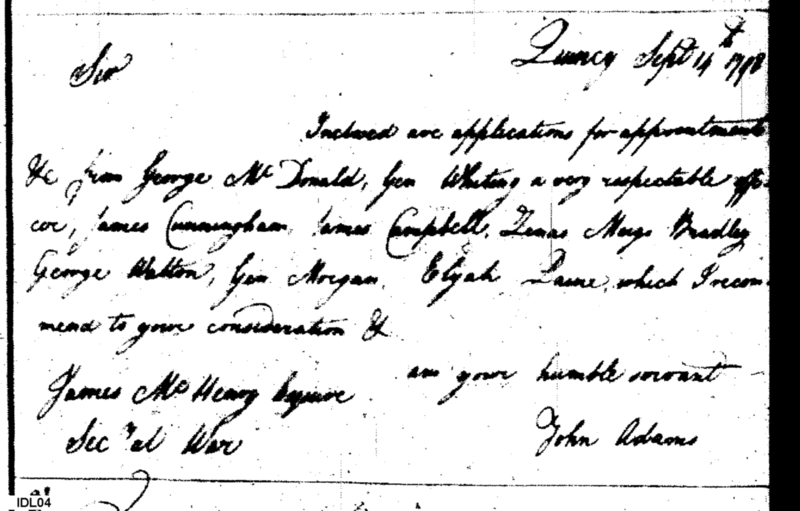 Quincy Sept 14th 1798
Sir
Inclosed are applications for appointments
&c from George McDonald, Gen Whiting a very respectable offi-
cer, James Cunningham, James Campbell, Zenas Meigs Bradley
George Walton, Gen Morgan, Elijah Paine, which I recom-
mend to your consideration &
am your humble servant
James McHenry Esquire
Secy at War
John Adams
IDL04